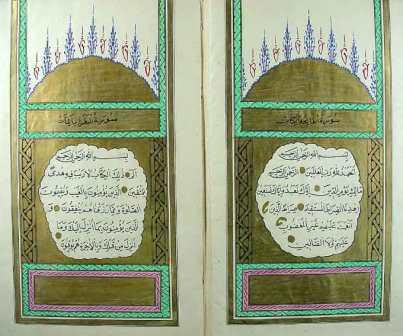 سورة فاتحة الكتاب
بسم الله الرحمن الرحيم
الحمد لله رب العالمين الرحمن الرحيم
مالك يوم الدين اياك نعبد واياك نستعين
اهدنا الصراط المستقيم صراط الذين
انعمت عليهم غير المغضوب
عليهم ولا الضالين
سورة البقرة
بسم الله الرحمن الرحيم
الم ذلك الكتاب لا ريب فيه هدى
للمتقين الذين يؤمنون بالغيب ويقيمون
الصلوة ومما رزقناهم ينفقون و
الذين يؤمنون بما انزل اليك وما
انزل من قبلك وبالاخرة هم يوقنون